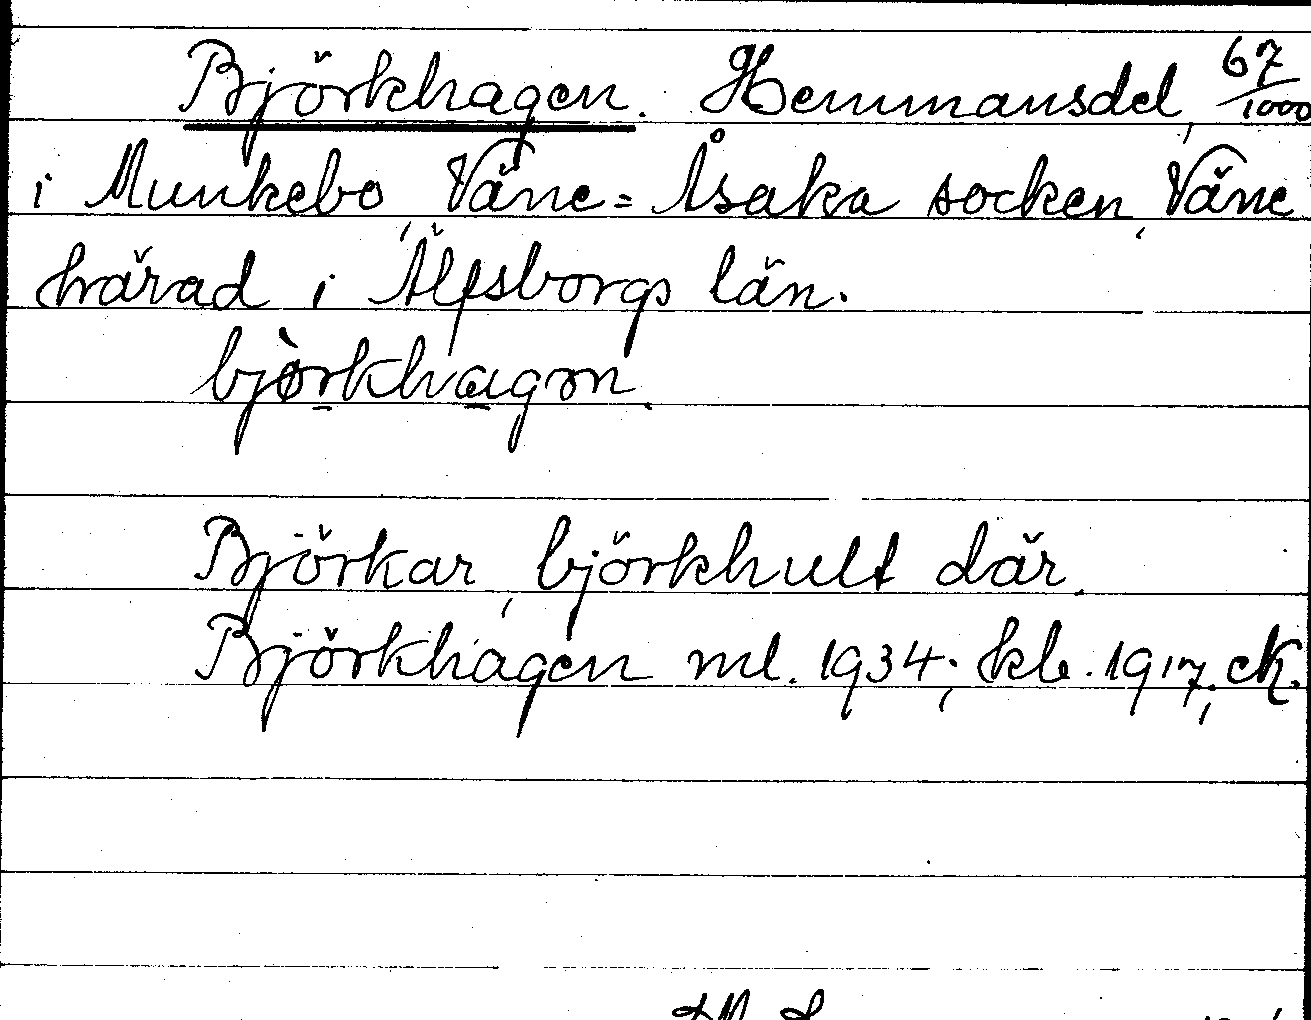 Björkhagen. Hemmansdel, 67/1000
i Munkebo, Väne=Åsaka socken, Väne
härad i Älfsborgs län.
bjòrkhagen.
Björkar, björkhult där.
Björkhagen ml. 1934; skb. 1917; eK.